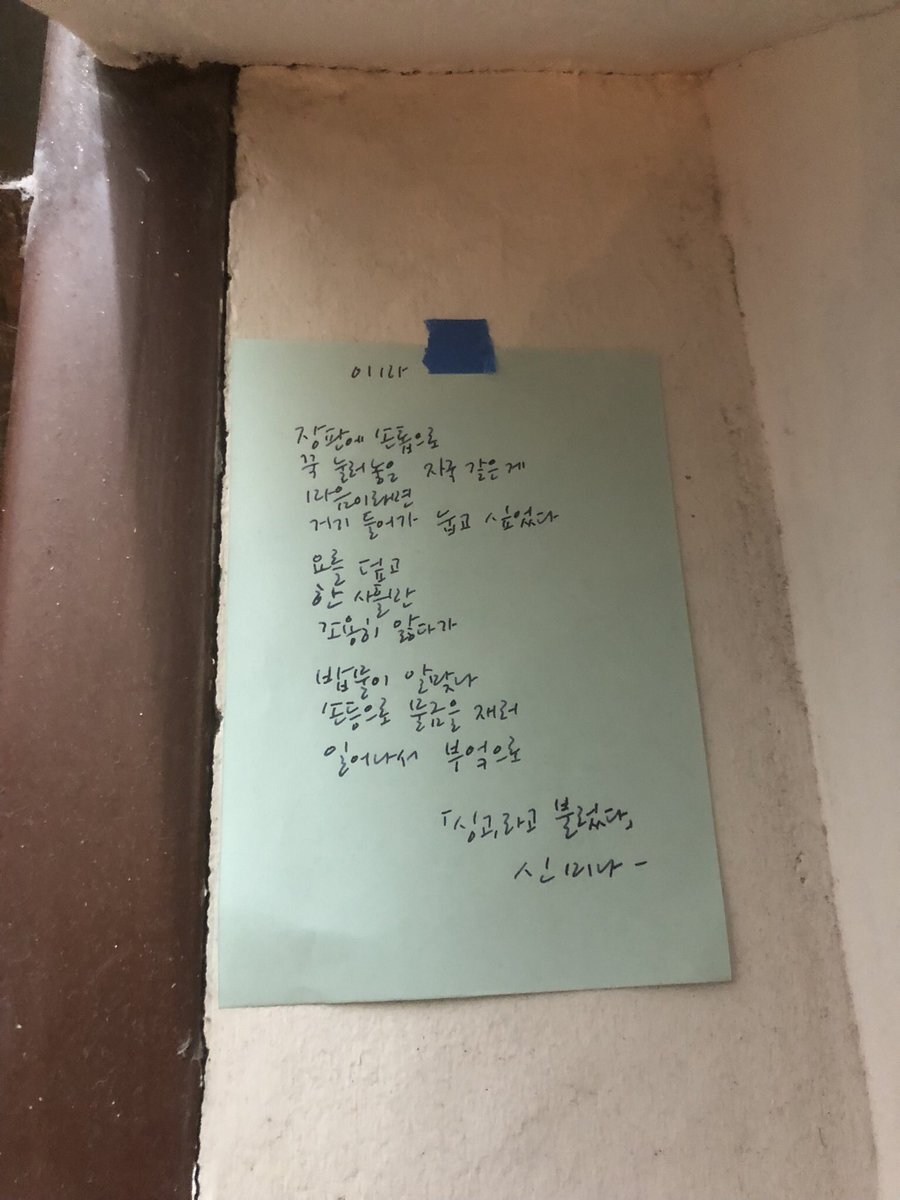 이마
장판에 손톱으로
꾹 눌러놓은 자국 같은 게
마음이라면
거기 들어가 눕고 싶었다
요를 덮고
한 사흘만
조용히 앓다가
밥물이 알맞나
손등으로 물금을 재러
일어나서 부엌으로
「싱고,라고 불렀다」
신미나 -